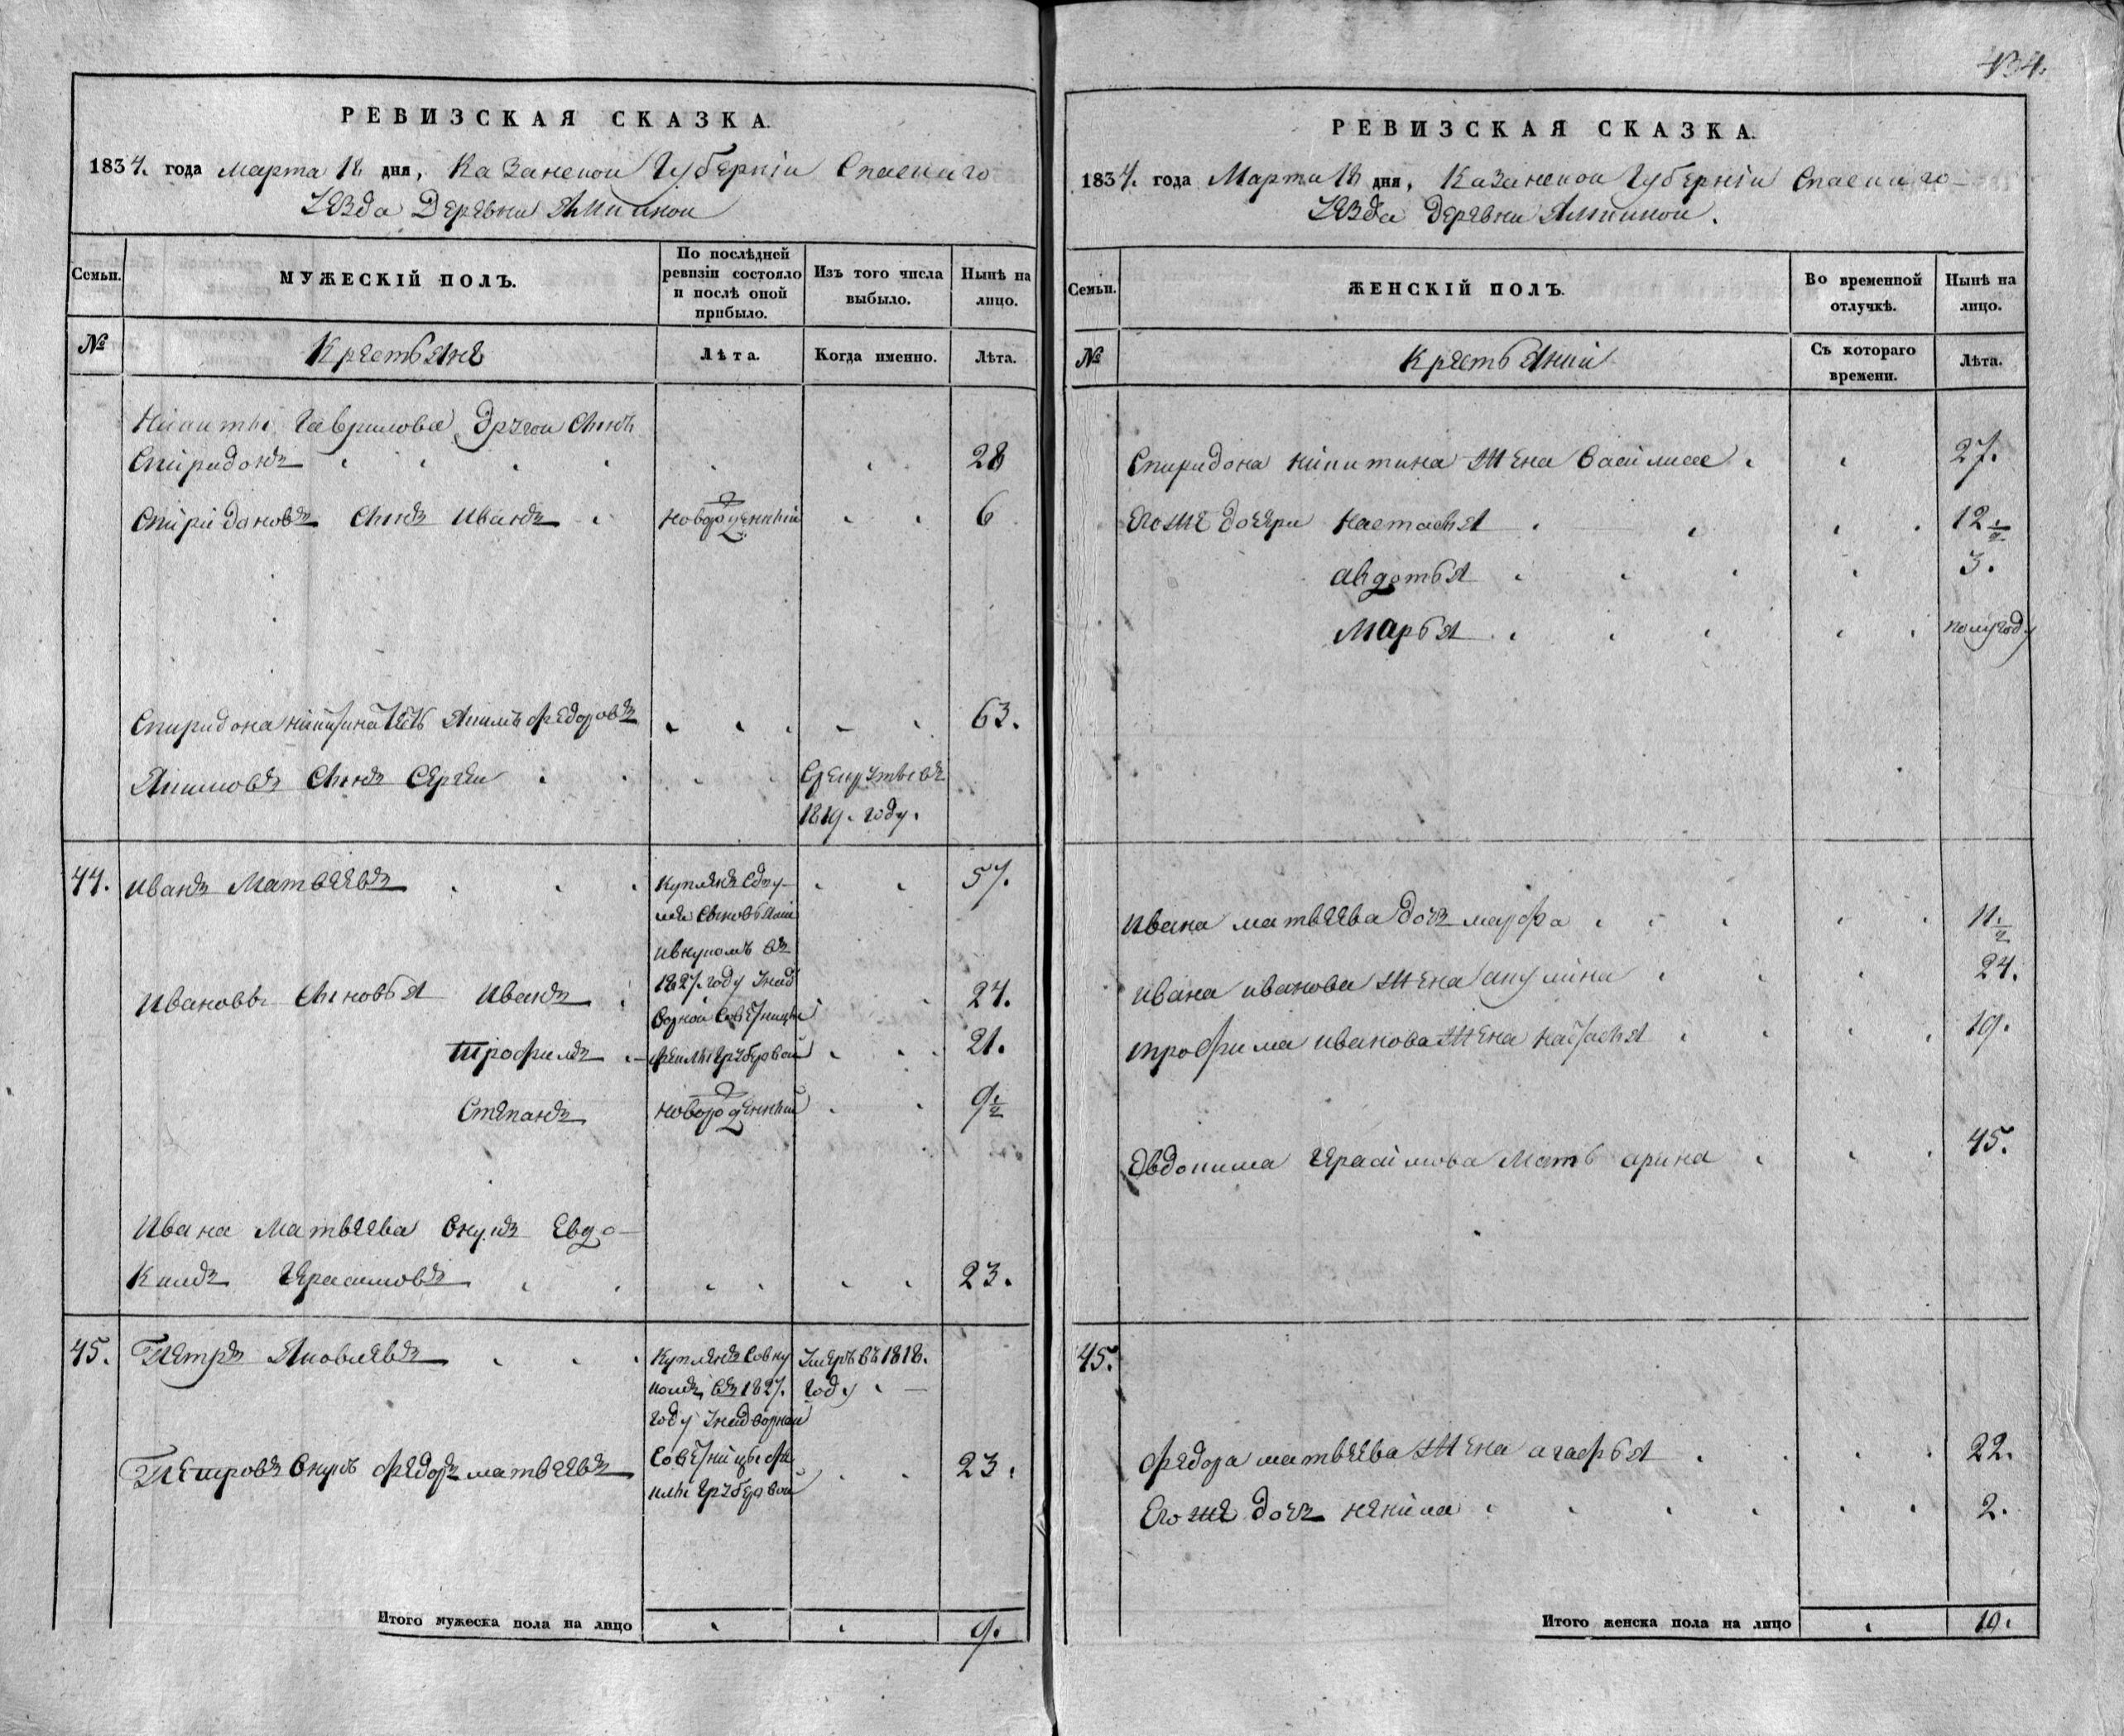 РЕВИЗСКАЯ СКАЗКА.
1834. года марта 18 дня, Казанской Губерніи Спаскаго
Уѣзда Деревни
Семьи.
МУЖЕСКІЙ ПОЛЪ.
По послѣдней ревизіи состояло и послѣ оной прибыло.
Изъ того числа выбыло.
Нынѣ на лицо.
№
Крестьяне
Лѣта.
Когда именно.
Лѣта.
Никиты Гаврилова другой сынъ
Спиридонъ 28
Спиридоновъ сынъ Иванъ новорожденный 6
Спиридона Никитина тесть Якимъ Федоровъ 63.
Якимовъ сынъ Сергей въ рекруты въ
1819. году.
44. Иванъ Матвеевъ 57.
купленъ
сыновьями
и внукомъ въ
1827. году у над
Ивановы сыновья Иванъ ворной советницы 24.
Трофимъ Груберовой 21.
Степанъ новорожденный 9 1/2
Ивана Матвеева внукъ Евдо-
кимъ Герасимовъ 23.
45. Петръ Яковлевъ купленъ с вну умеръ въ 1818.
комъ въ 1827. году
году у надворной
советницы Фе
Петровъ внукъ Федоръ Матвеевъ 23.
Груберовой
Итого мужеска пола на лицо 9.
134.
РЕВИЗСКАЯ СКАЗКА.
1834. года Марта 18 дня, Казанской Губерніи Спаскаго
Уѣзда Деревни
Семьи.
ЖЕНСКІЙ ПОЛЪ.
Во временной отлучкѣ.
Нынѣ на лицо.
№
Съ котораго времени.
Лѣта.
Спиридона Никитина жена Василиса 27.
Его же дочери Настасья 12 1/2
Авдотья 3.
Марья полугоду
Ивана Матвеева дочь Марфа 11 1/2
Ивана Иванова жена Акулина 24.
Трофима Иванова жена Настасья 19.
Овдокима Герасимова мать Арина 45.
45.
Федора Матвеева жена Агафья 22.
Его же дочь Ненила 2.
Итого женска пола на лицо 10.